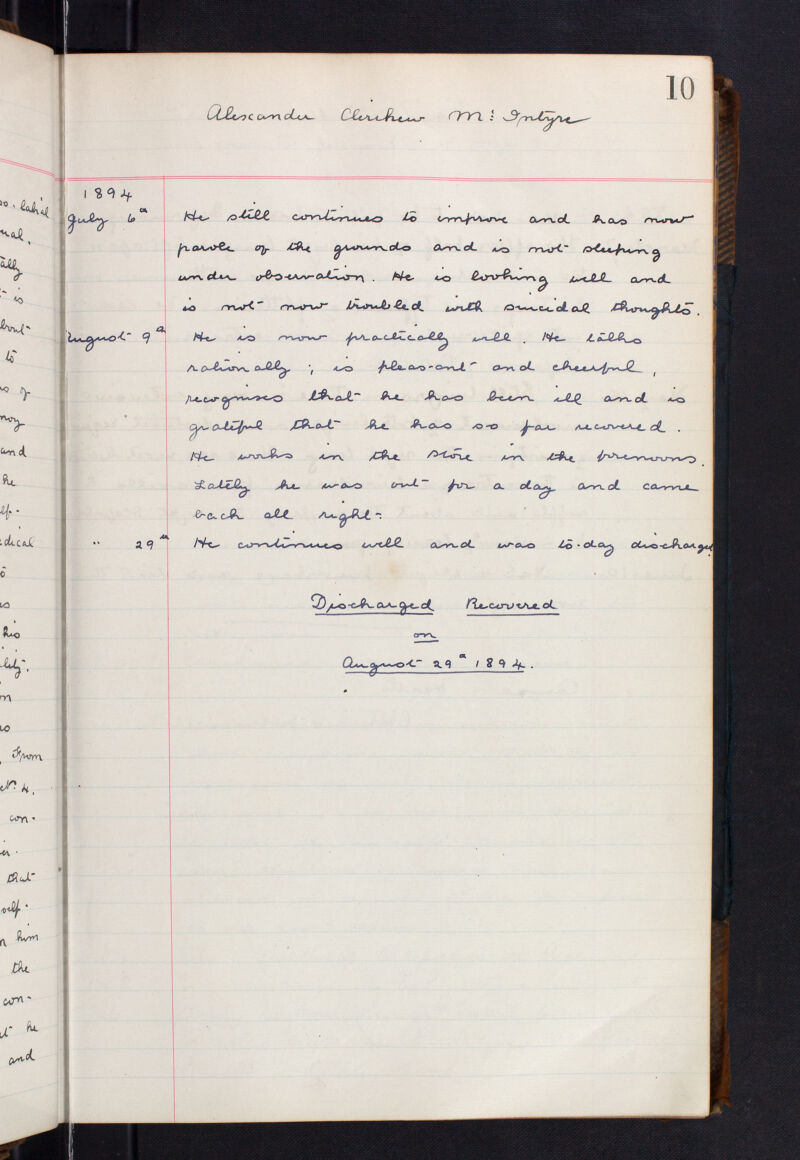 10
Alexander Clerihew Mc: Intyre
1894
July 6th He still continues to improve and has now
parole of the grounds and is not sleeping
under observation. He is looking well and
is not now troubled with suicidal thoughts.
August 9th He is now practically well. He talks
rationally; is pleasant and cheerful,
recognises that he has been ill and is
grateful that he has so far recovered.
He works in the store in the forenoons.
Lately he was out for a day and came
back all right.
" 29th He continues well and was to-day discharged
Discharged Recovered
on
August 29th 1894.
is
to
and
he
his
From
No. 4.
con-
that
self-
him
the
con-
he
and